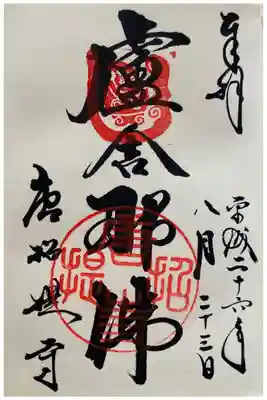 奉拝
平成二十六年
八月二十三日
盧舎那佛
唐招提寺